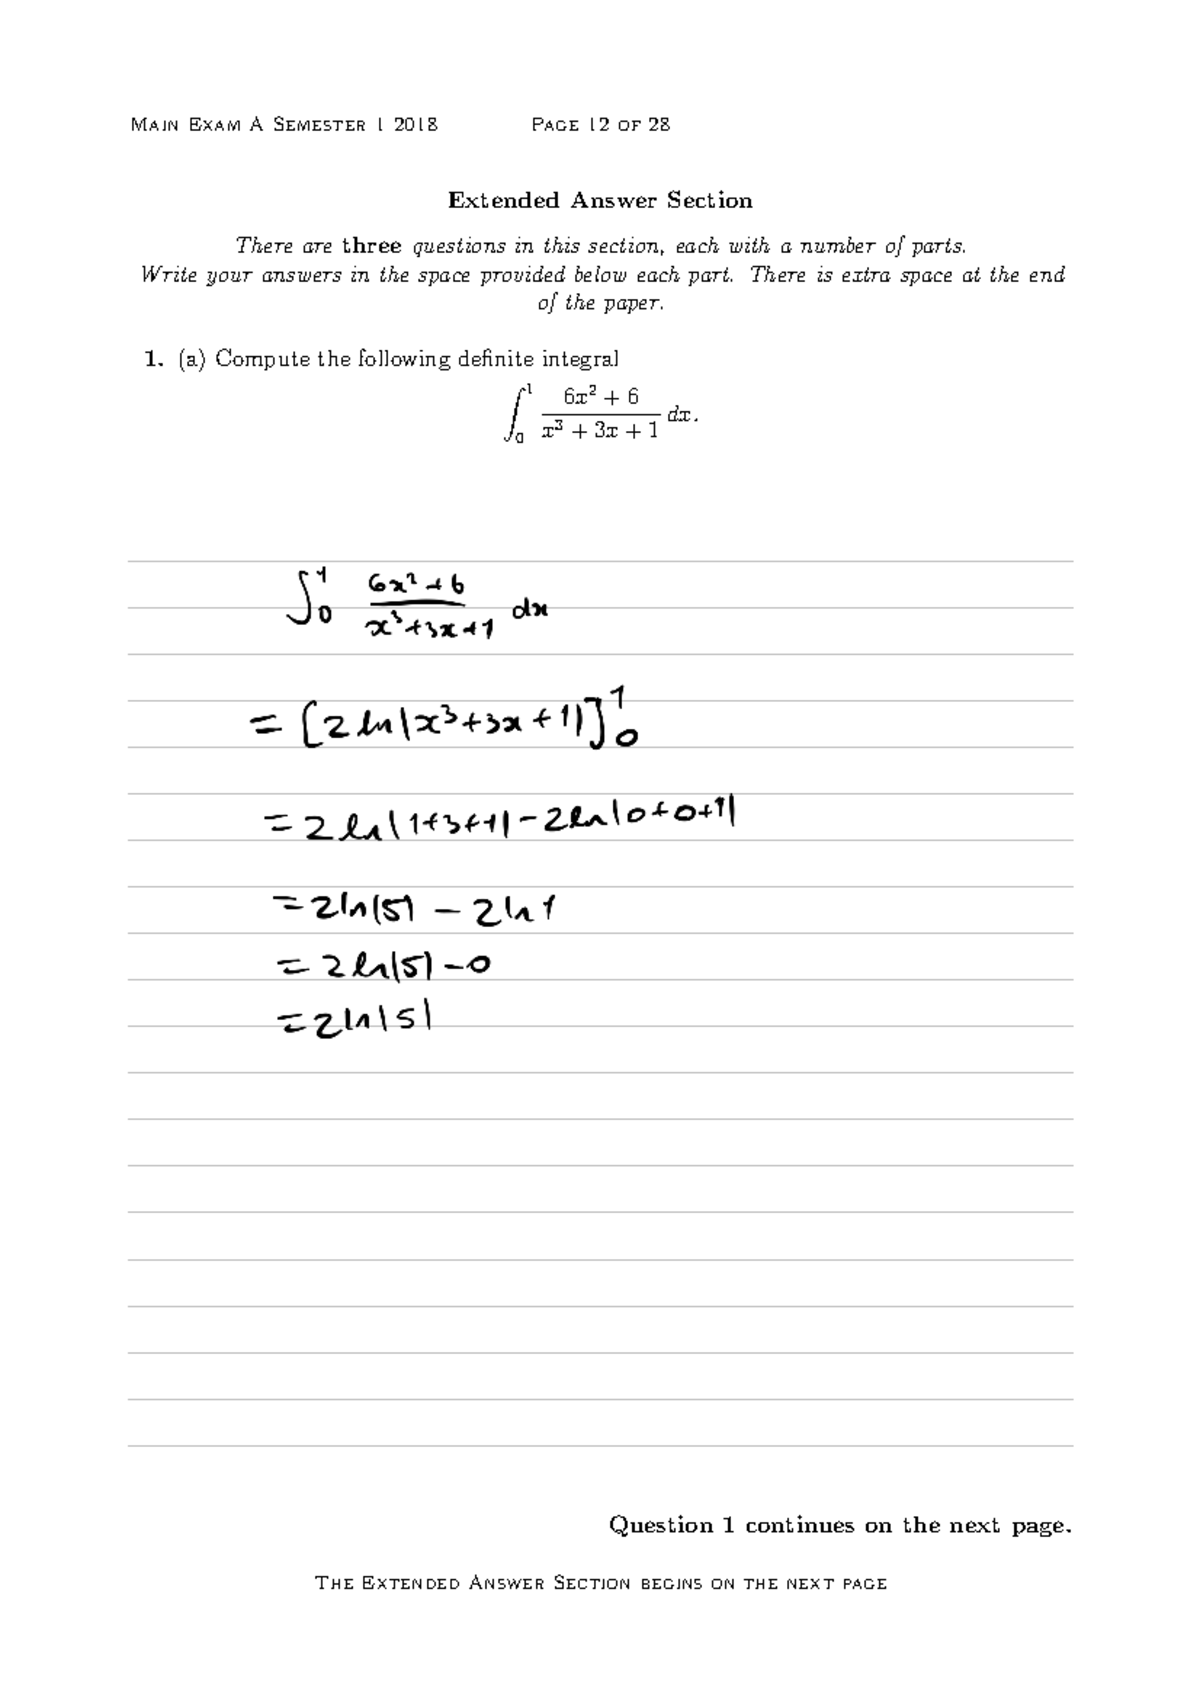 MAIN EXAM A SEMESTER 1 2018 PAGE 12 OF 28
Extended Answer Section
There are three questions in this section, each with a number of parts.
Write your answers in the space provided below each part. There is extra space at the end
of the paper.
1. (a) Compute the following definite integral
∫₀¹ (6x² + 6)/(x³ + 3x + 1) dx.
∫₀¹ (6x²+6)/(x³+3x+1) dx
= [2 ln|x³+3x+1|]₀¹
= 2 ln|1+3+1| - 2 ln|0+0+1|
= 2 ln|5| - 2 ln 1
= 2 ln|5| - 0
= 2 ln|5|
Question 1 continues on the next page.
THE EXTENDED ANSWER SECTION BEGINS ON THE NEXT PAGE